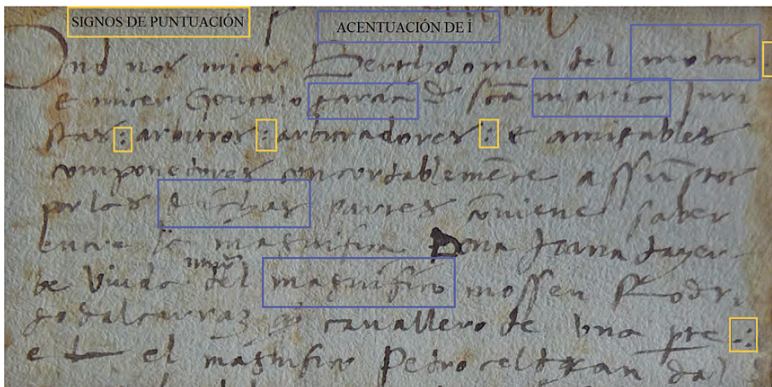 SIGNOS DE PUNTUACIÓN ACENTUACIÓN DE Í
Ond nos micer Bertholomeu del molino :
e micer Gonçalo garcia d sta maria Juri
stas : arbitros : arbitradores : e amigables
componedores concordablemente assumptos
por las dichas partes conviene saber
entre la magnifica Dona Joana
be viuda del magnifico mossen Rodri
go dalcarraz cavallero de una pte :
e el magnifico Pedro